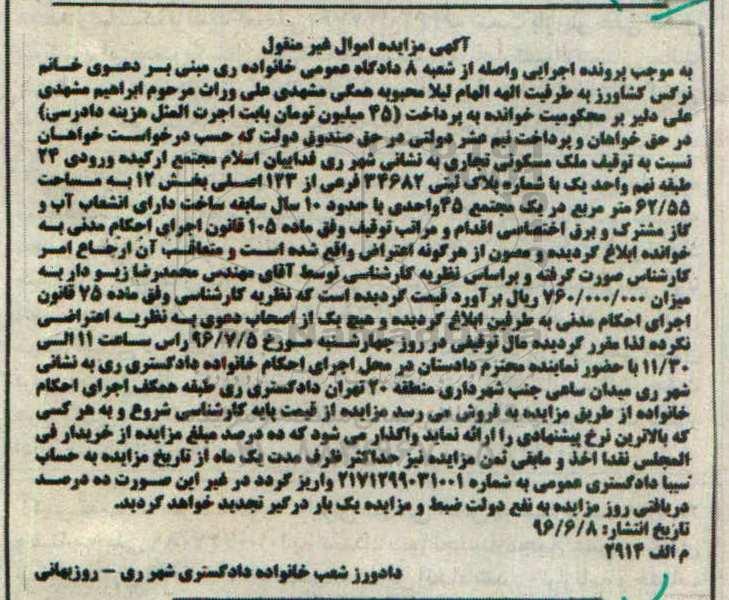 آگهی مزایده اموال غیر منقول
به موجب پرونده اجرایی واصله از شعبه ۸ دادگاه عمومی خانواده ری مبنی بر دعوی خانم
نرگس کشاورز به طرفیت الهه الهام لیلا محبوبه همگی مشهدی علی وراث مرحوم ابراهیم مشهدی
علی دلیر بر محکومیت خوانده به پرداخت (۴۵ میلیون تومان بابت اجرت المثل هزینه دادرسی)
در حق خواهان و پرداخت نیم عشر دولتی در حق صندوق دولت که حسب درخواست خواهان
نسبت به توقیف ملک مسکونی تجاری به نشانی شهر ری فداییان اسلام مجتمع ارکیده ورودی ۲۴
طبقه نهم واحد یک با شماره پلاک ثبتی ۳۴۶۸۲ فرعی از ۱۲۳ اصلی بخش ۱۲ به مساحت
۶۲/۵۵ متر مربع در یک مجتمع ۴۵ واحدی با حدود ۱۰ سال سابقه ساخت دارای انشعاب آب و
گاز مشترک و برق اختصاصی اقدام و مراتب توقیف وفق ماده ۱۰۵ قانون اجرای احکام مدنی به
خوانده ابلاغ گردیده و مصون از هرگونه اعتراض واقع شده است و متعاقب آن ارجاع امر
کارشناس صورت گرفته و براساس نظریه کارشناسی توسط آقای مهندس محمدرضا زیو دار به
میزان ۷۶۰/۰۰۰/۰۰۰ ریال برآورد قیمت گردیده است که نظریه کارشناسی وفق ماده ۷۵ قانون
اجرای احکام مدنی به طرفین ابلاغ گردیده و هیچ یک از اصحاب دعوی به نظریه اعتراضی
نکرده لذا مقرر گردیده مال توقیفی در روز چهارشنبه مورخ ۹۶/۷/۵ راس ساعت ۱۱ الی
۱۱/۳۰ با حضور نماینده محترم دادستان در محل اجرای احکام خانواده دادگستری ری به نشانی
شهر ری میدان ساعی جنب شهرداری منطقه ۲۰ تهران دادگستری ری طبقه همکف اجرای احکام
خانواده از طریق مزایده به فروش می رسد مزایده از قیمت پایه کارشناسی شروع و به هر کسی
که بالاترین نرخ پیشنهادی را ارائه نماید واگذار می شود که ده درصد مبلغ مزایده از خریدار فی
المجلس نقدا اخذ و مابقی ثمن مزایده نیز حداکثر ظرف مدت یک ماه از تاریخ مزایده به حساب
سیبا دادگستری عمومی به شماره ۲۱۷۱۲۹۹۰۳۱۰۰۱ واریز گردد در غیر این صورت ده درصد
دریافتی روز مزایده به نفع دولت ضبط و مزایده یک بار درگیر تجدید خواهد گردید.
تاریخ انتشار: ۹۶/۶/۸
م الف ۲۹۱۴
دادورز شعب خانواده دادگستری شهر ری – روزبهانی